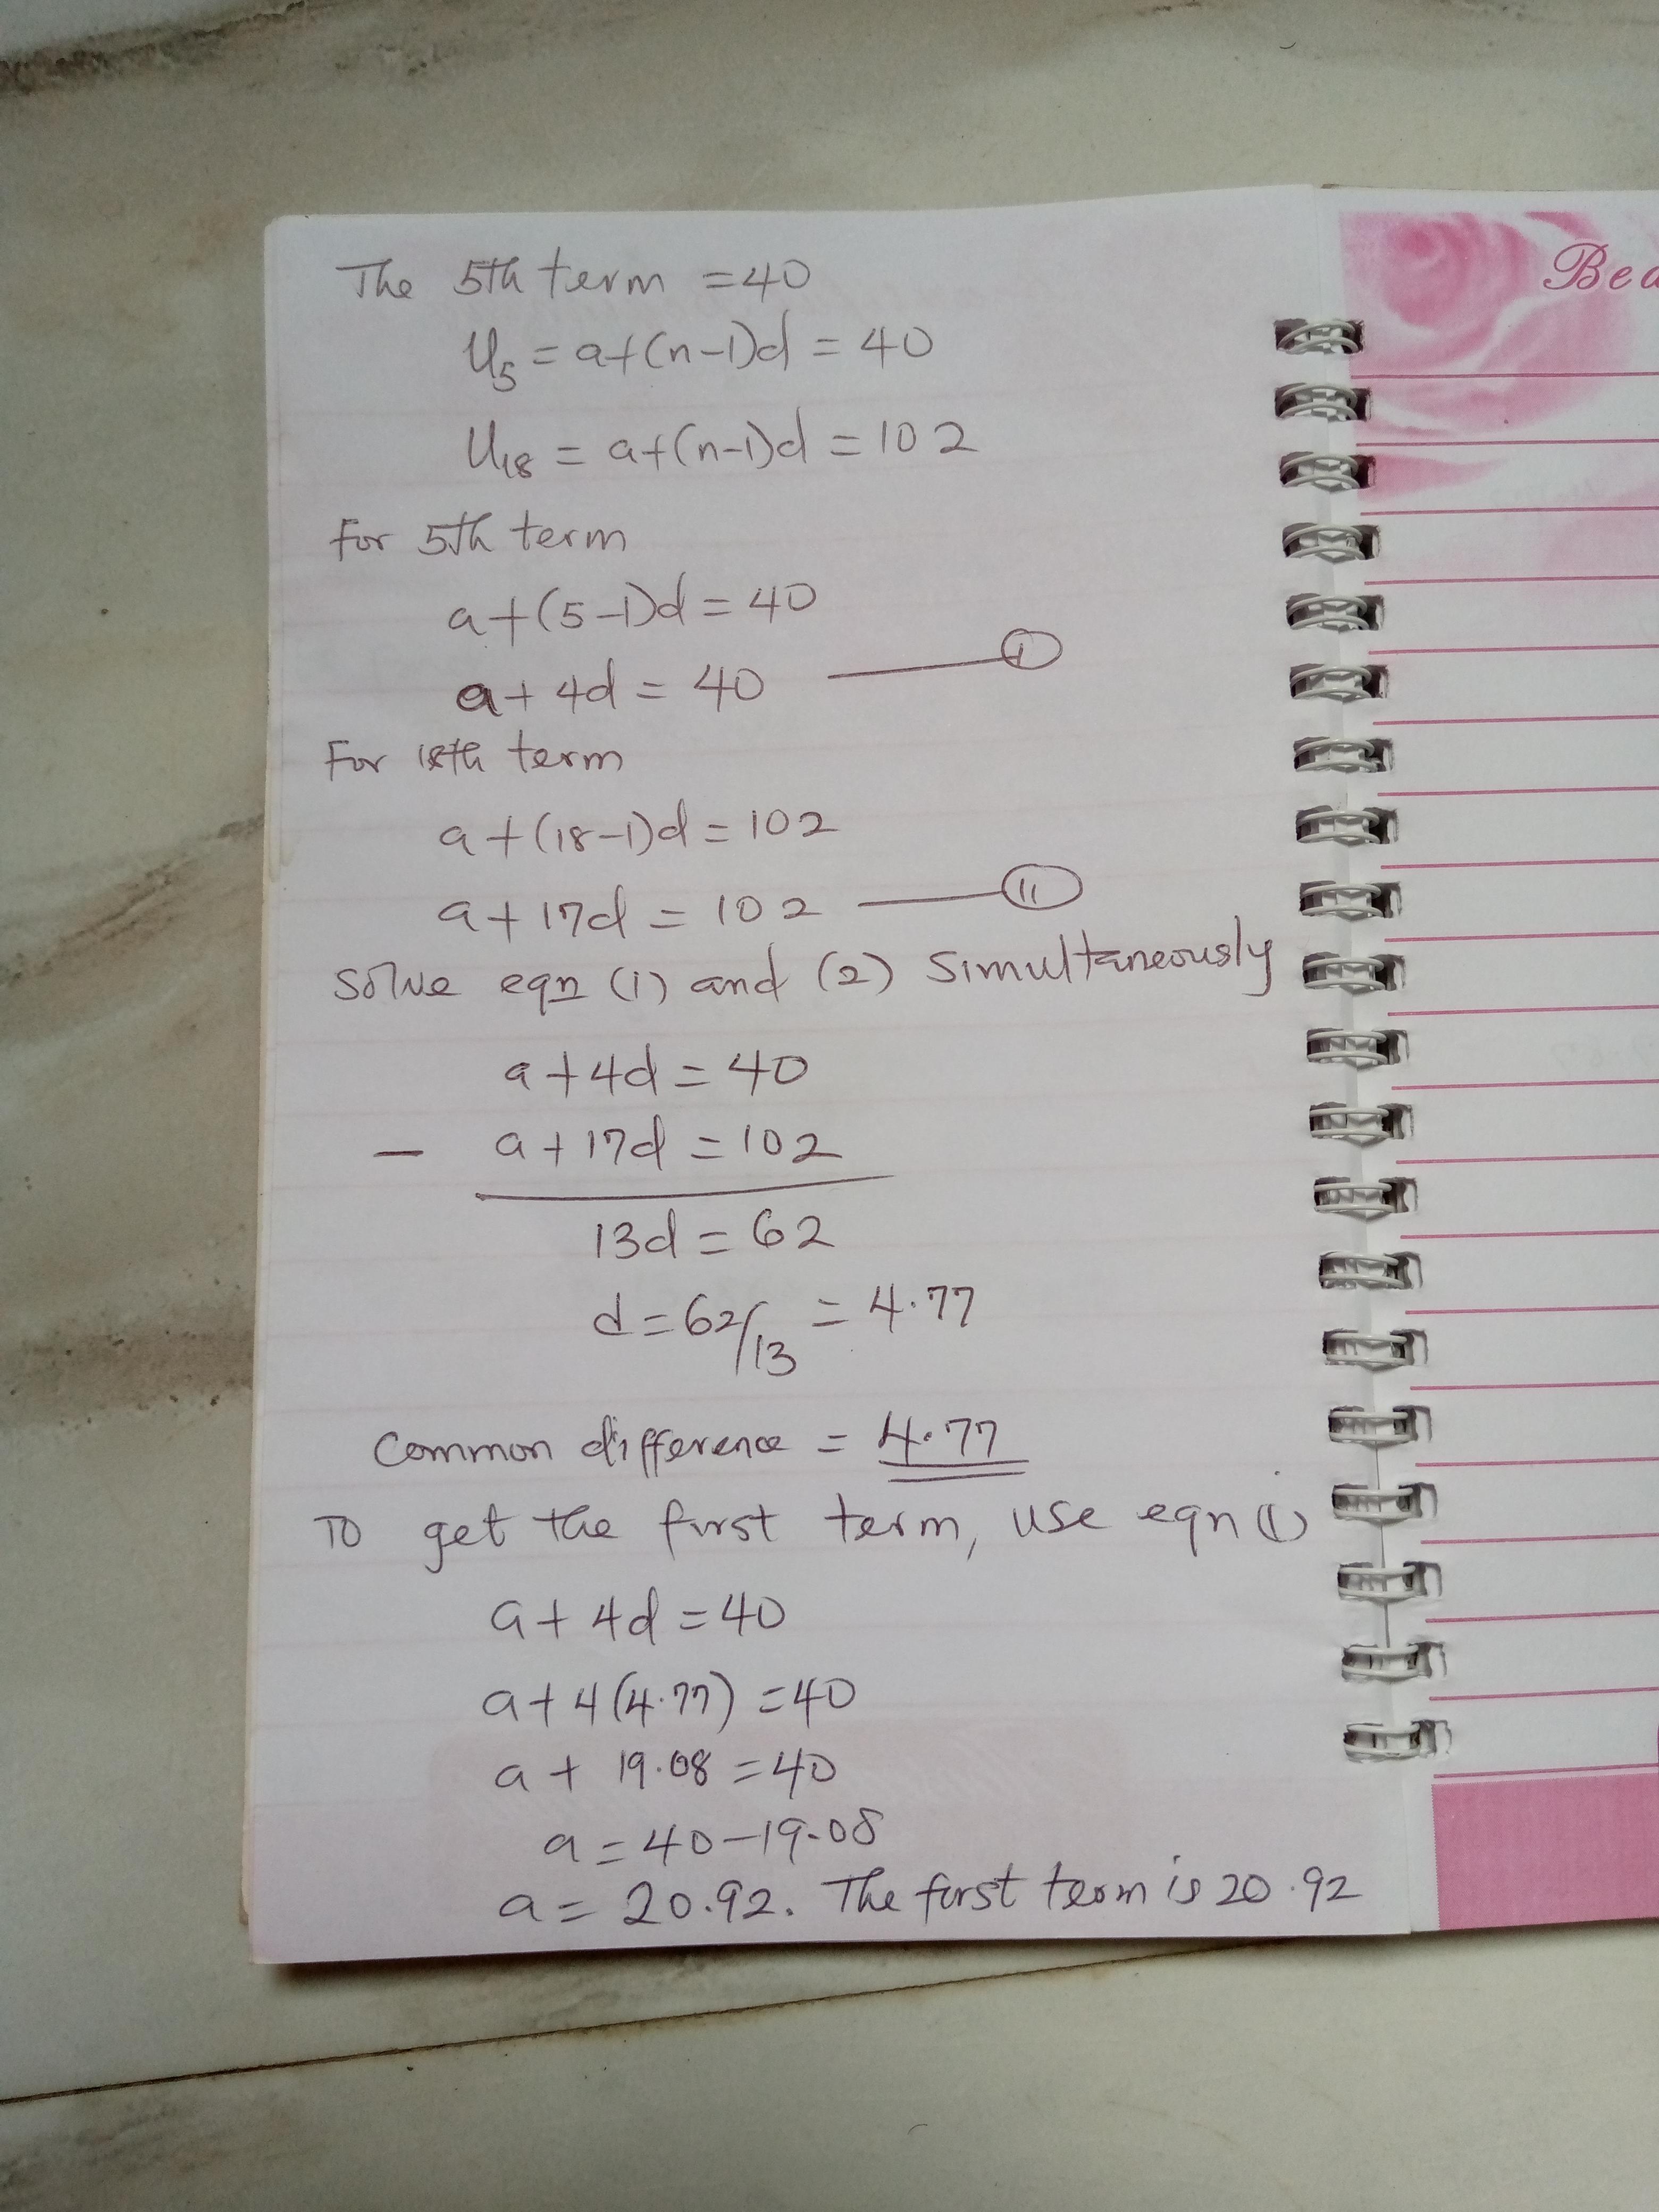 The 5th term = 40
U₅ = a+(n-1)d = 40
U₁₈ = a+(n-1)d = 102
For 5th term
a+(5-1)d = 40
a+4d = 40 —— (i)
For 18th term
a+(18-1)d = 102
a+17d = 102 —— (ii)
Solve eqn (1) and (2) simultaneously
a+4d = 40
— a+17d = 102
13d = 62
d = 62/13 = 4.77
Common difference = 4.77
To get the first term, use eqn (i)
a+4d = 40
a+4(4.77) = 40
a+ 19.08 = 40
a = 40-19.08
a = 20.92. The first term is 20.92